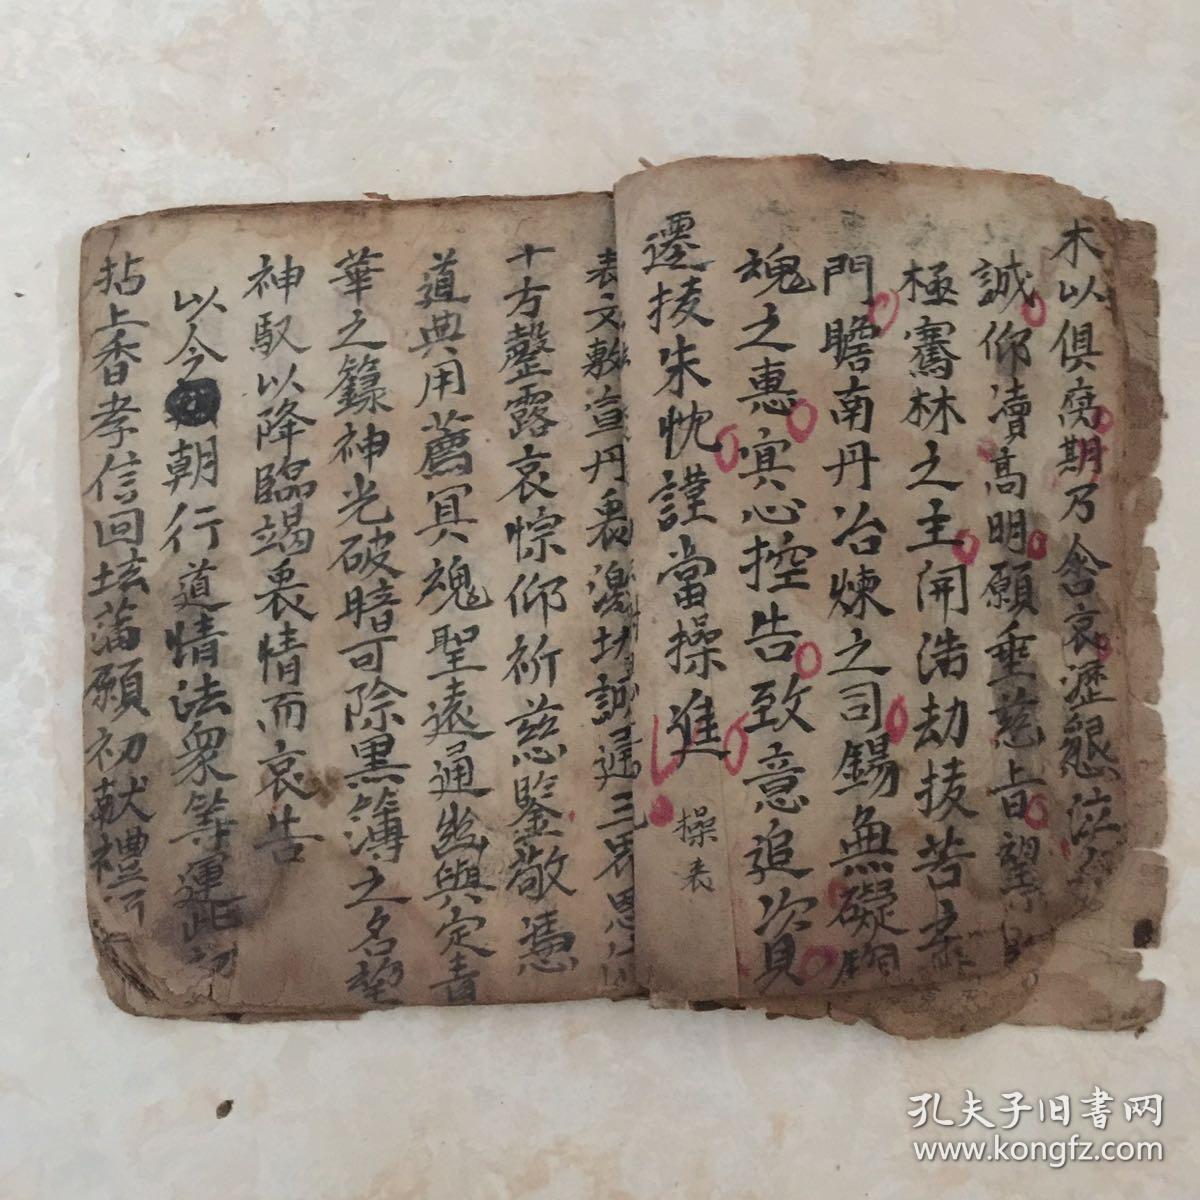 木以俱腐期乃含哀瀝懇泣
誠仰凟高明願垂慈旨望
極騫林之主開浩劫抜苦之
門瞻南丹冶煉之司錫無礙
魂之惠寘心控告致意追資
遷抜朱忱謹當操進
操表
表文敷宣丹裏誠
十方罄露哀悰仰祈慈鑒敬憑
道典用薦冥魂聖遠通幽與定青
華之籙神光破暗可除黒簿之名望
神馭以降臨竭衷情而哀告
以今朝行道情法衆等運此初
拈上香孝信回壇蒲願初献禮
孔夫子旧书网
www.kongfz.com